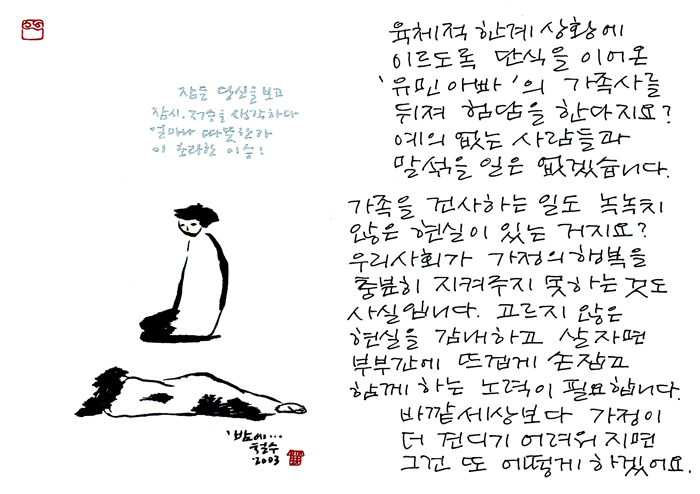 잠든 당신을 보고
잠시. 저승을 생각하다
얼마나 따뜻한가
이 초라한 이승!
'밤에...
철수
2003
육체적 한계 상황에
이르도록 단식을 이어온
'유민아빠'의 가족사를
뒤져 험담을 한다지요?
예의 없는 사람들과
말섞을 일은 없겠습니다.
가족을 건사하는 일도 녹녹치
않은 현실이 있는 거지요?
우리사회가 가정의 행복을
충분히 지켜주지 못하는 것도
사실입니다. 고르지 않은
현실을 감내하고 살자면
부부간에 뜨겁게 손잡고
함께 하는 노력이 필요합니다.
바깥세상보다 가정이
더 견디기 어려워 지면
그건 또 어떻게 하겠어요.